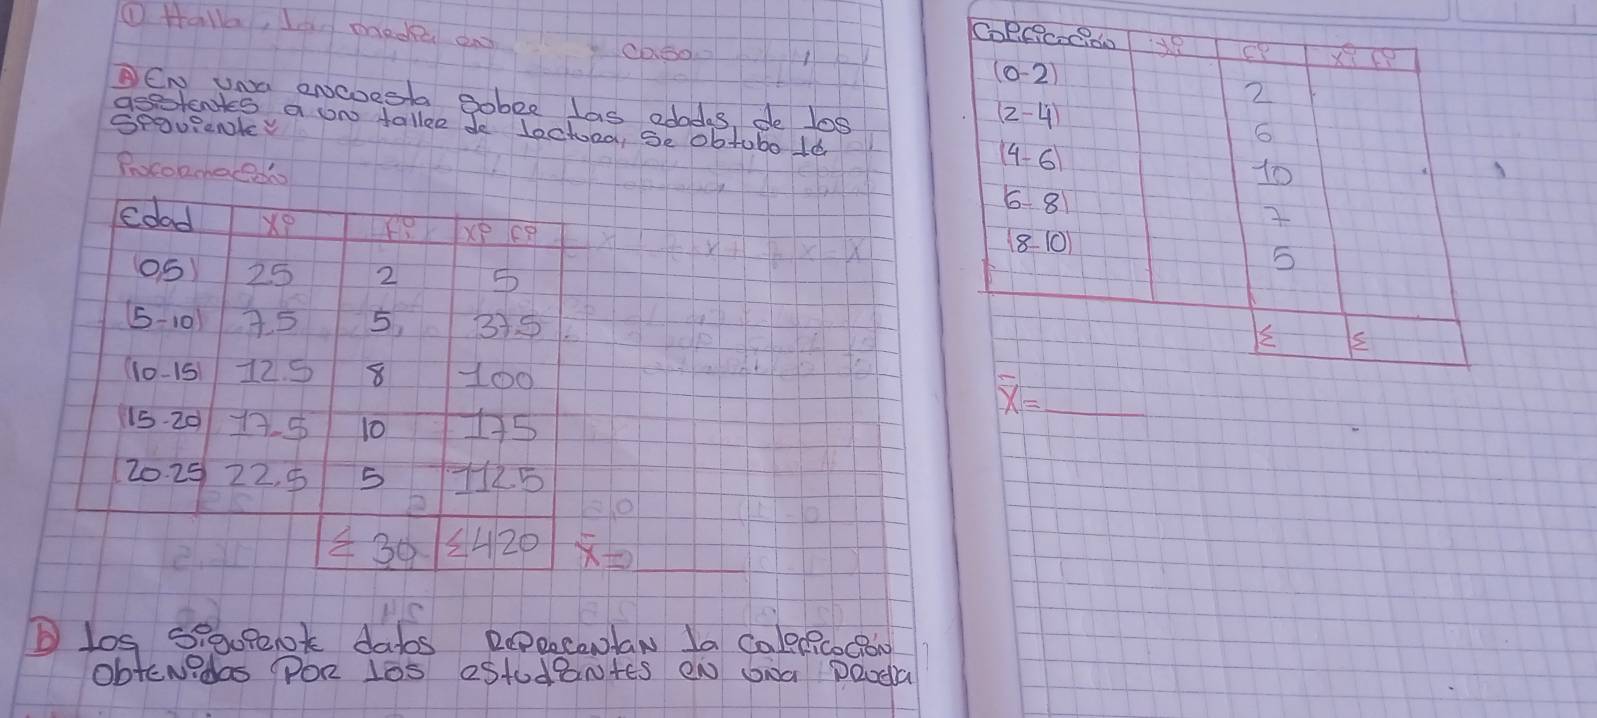 ① Halla, la media en caso
Ⓐ EN una encuesta sobre las edades de los
asistentes a uno taller de lectura, se obtubo la
siguiente
Información
Edad Xi fi Xi fi
(0,5) 25 2 5
(5-10) 7.5 5 37.5
(10-15) 12.5 8 100
(15-20) 17.5 10 175
(20-25) 22,5 5 112.5
Σ 30 Σ 420 X̄=
Ⓑ los siguiente datos representan la calificación
obtenidas por los estudiantes en una prueba
Calificación Xi fi Xi fi
(0-2) 2
(2-4) 6
(4-6) 10
(6-8) 7
(8-10) 5
Σ Σ
X̄=